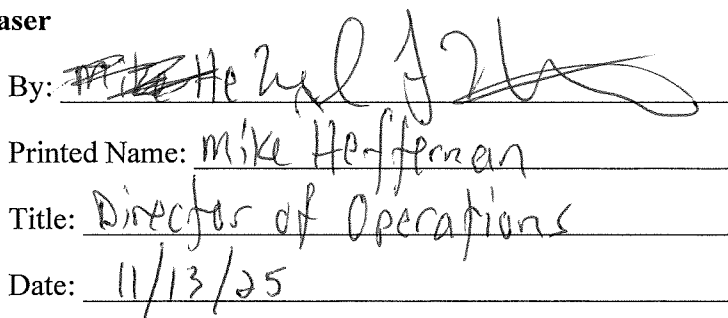 aser
By: Mike He
Printed Name: Mike Heffernan
Title: Director of Operations
Date: 11/13/25